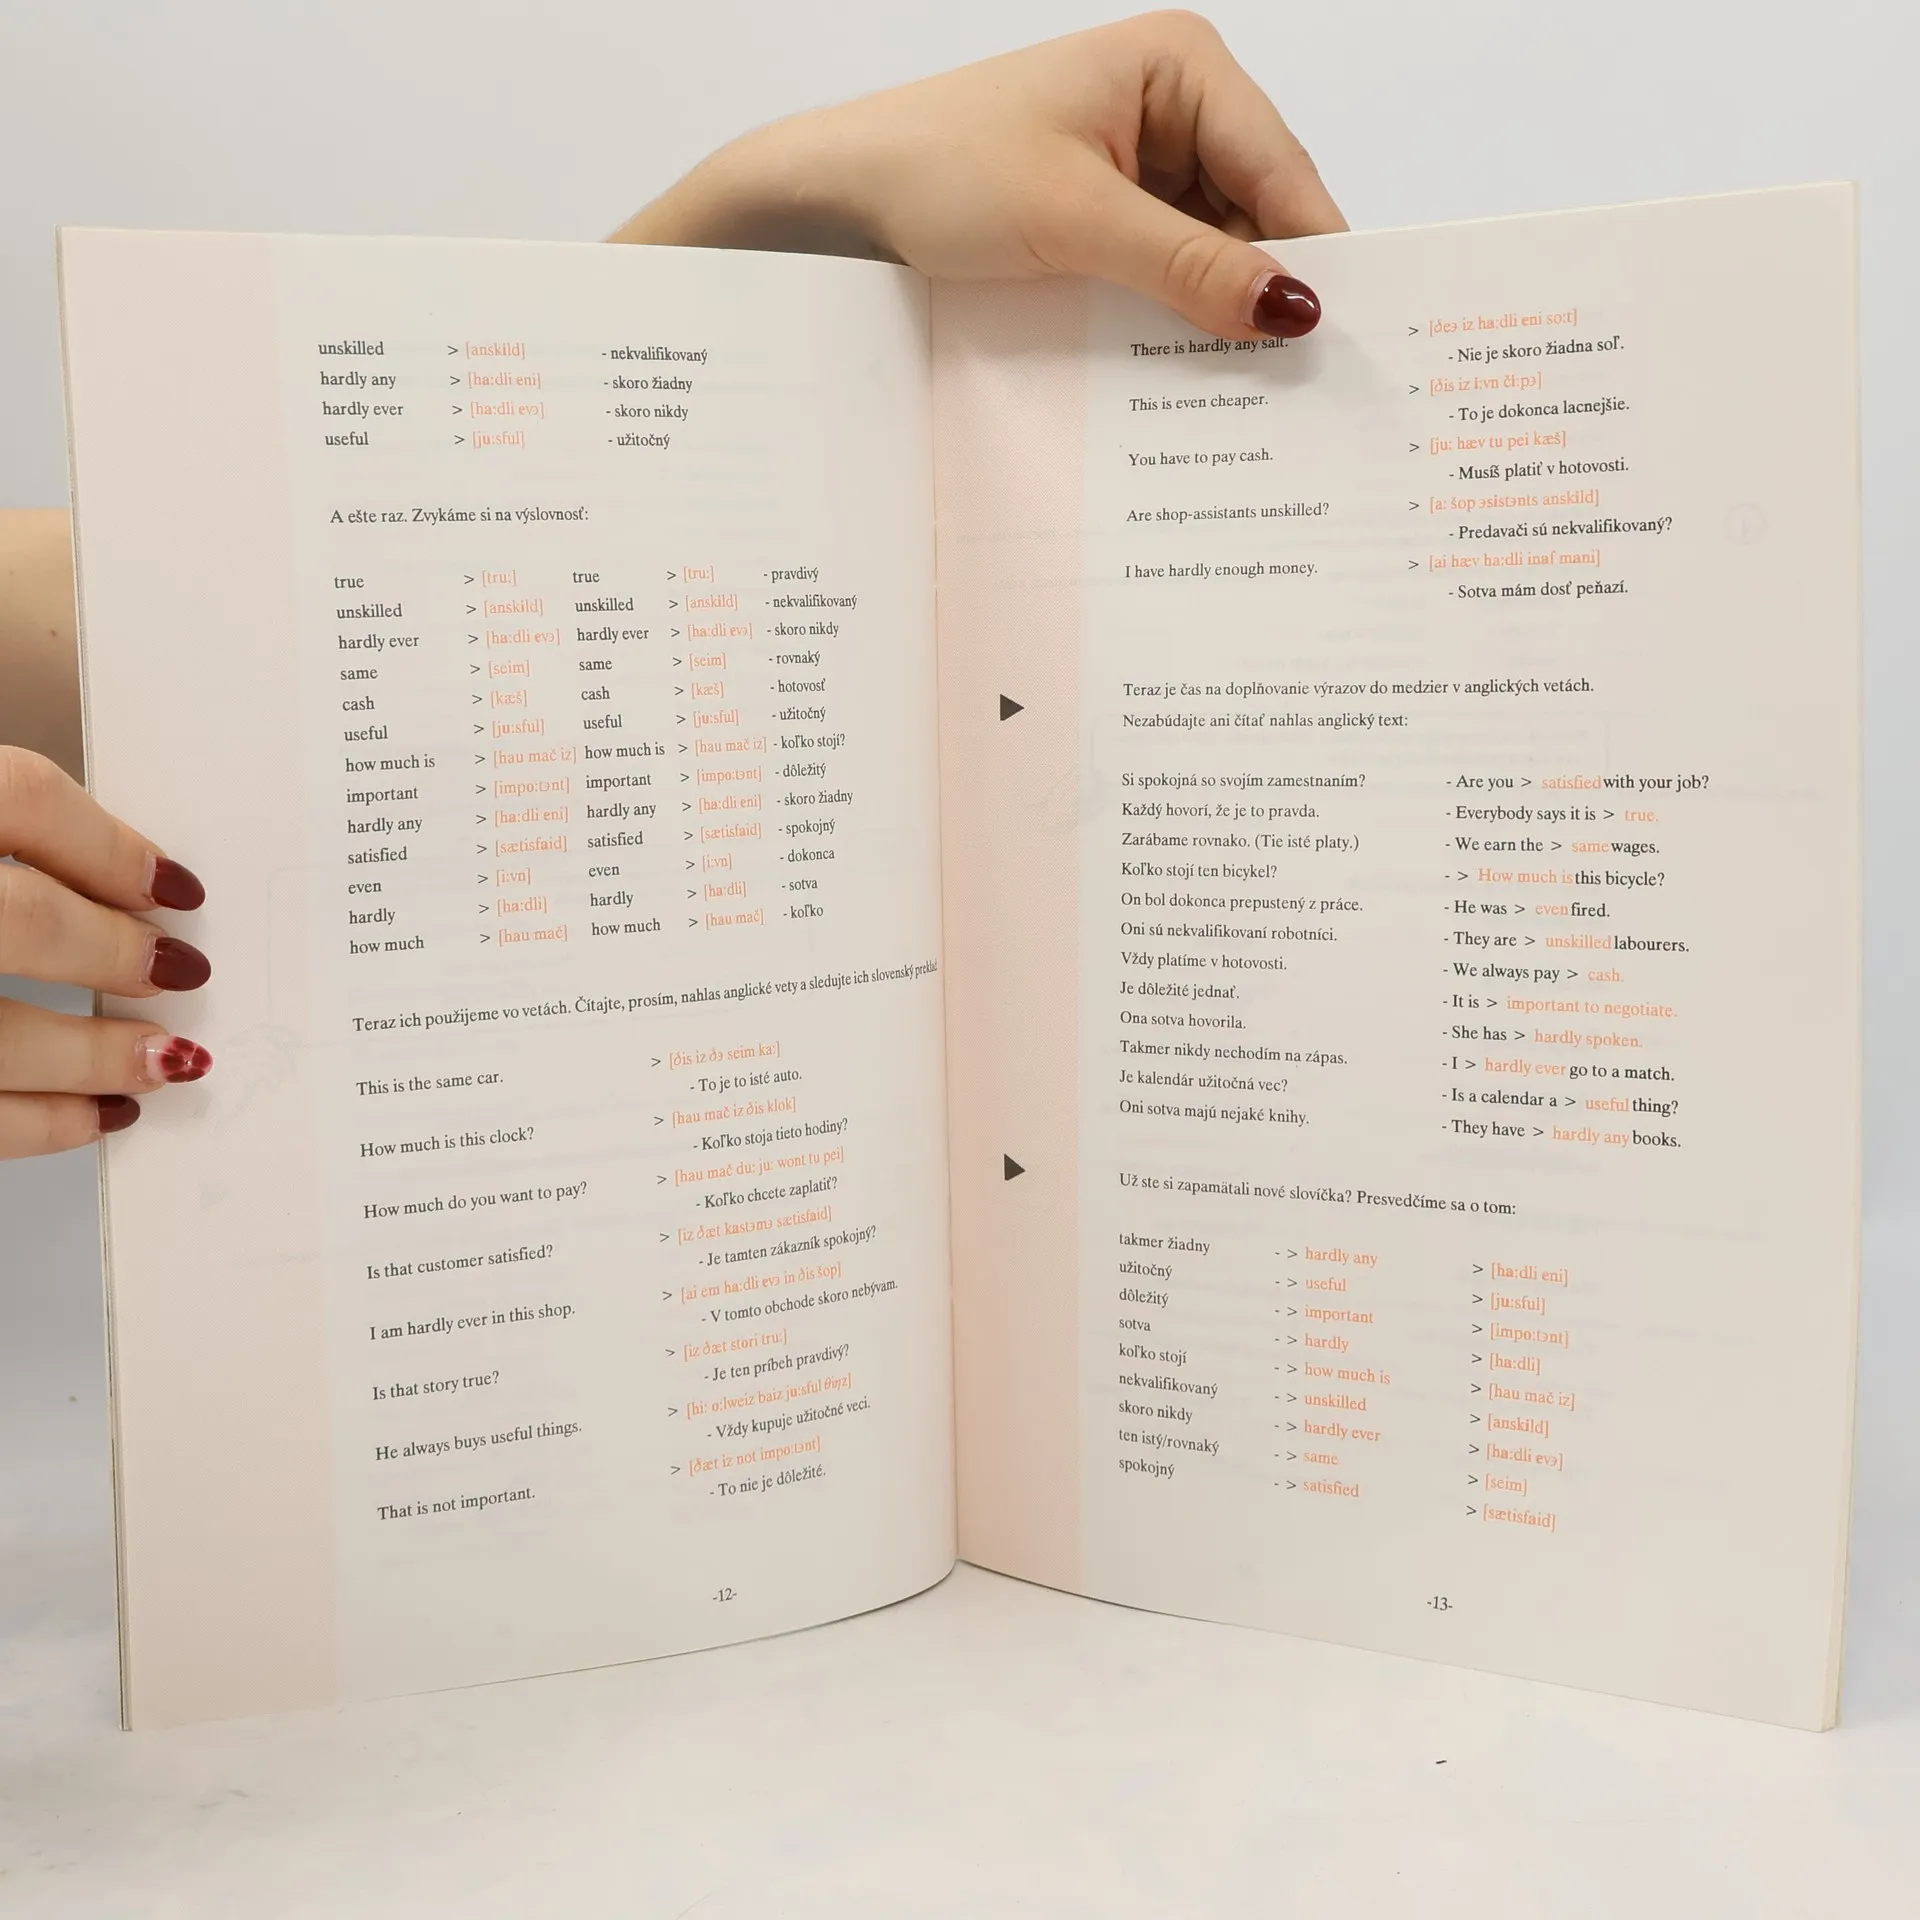 unskilled > [anskild] - nekvalifikovaný
hardly any > [ha:dli eni] - skoro žiadny
hardly ever > [ha:dli evə] - skoro nikdy
useful > [ju:sful] - užitočný
A ešte raz. Zvykáme si na výslovnosť:
true > [tru:] true > [tru:] - pravdivý
unskilled > [anskild] unskilled > [anskild] - nekvalifikovaný
hardly ever > [ha:dli evə] hardly ever > [ha:dli evə] - skoro nikdy
same > [seim] same > [seim] - rovnaký
cash > [kæš] cash > [kæš] - hotovosť
useful > [ju:sful] useful > [ju:sful] - užitočný
how much is > [hau mač iz] how much is > [hau mač iz] - koľko stojí?
important > [impo:tənt] important > [impo:tənt] - dôležitý
hardly any > [ha:dli eni] hardly any > [ha:dli eni] - skoro žiadny
satisfied > [sætisfaid] satisfied > [sætisfaid] - spokojný
even > [i:vn] even > [i:vn] - dokonca
hardly > [ha:dli] hardly > [ha:dli] - sotva
how much > [hau mač] how much > [hau mač] - koľko
Teraz ich použijeme vo vetách. Čítajte, prosím, nahlas anglické vety a sledujte ich slovenský preklad
> [ðis iz ðə seim ka:]
This is the same car. - To je to isté auto.
> [hau mač iz ðis klok]
How much is this clock? - Koľko stoja tieto hodiny?
> [hau mač du: ju: wont tu pei]
How much do you want to pay? - Koľko chcete zaplatiť?
> [iz ðæt kastəmə sætisfaid]
Is that customer satisfied? - Je tamten zákazník spokojný?
> [ai em ha:dli evə in ðis šop]
I am hardly ever in this shop. - V tomto obchode skoro nebývam.
> [iz ðæt stori tru:]
Is that story true? - Je ten príbeh pravdivý?
> [hi: o:lweiz baiz ju:sful θiŋz]
He always buys useful things. - Vždy kupuje užitočné veci.
> [ðæt iz not impo:tənt]
That is not important. - To nie je dôležité.
-12-
> [ðeə iz ha:dli eni so:t]
There is hardly any salt. - Nie je skoro žiadna soľ.
> [ðis iz i:vn či:pə]
This is even cheaper. - To je dokonca lacnejšie.
> [ju: hæv tu pei kæš]
You have to pay cash. - Musíš platiť v hotovosti.
> [a: šop əsistənts anskild]
Are shop-assistants unskilled? - Predavači sú nekvalifikovaný?
> [ai hæv ha:dli inaf mani]
I have hardly enough money. - Sotva mám dosť peňazí.
Teraz je čas na doplňovanie výrazov do medzier v anglických vetách.
Nezabúdajte ani čítať nahlas anglický text:
Si spokojná so svojím zamestnaním? - Are you > satisfied with your job?
Každý hovorí, že je to pravda. - Everybody says it is > true.
Zarábame rovnako. (Tie isté platy.) - We earn the > same wages.
Koľko stojí ten bicykel? - > How much is this bicycle?
On bol dokonca prepustený z práce. - He was > even fired.
Oni sú nekvalifikovaní robotníci. - They are > unskilled labourers.
Vždy platíme v hotovosti. - We always pay > cash.
Je dôležité jednať. - It is > important to negotiate.
Ona sotva hovorila. - She has > hardly spoken.
Takmer nikdy nechodím na zápas. - I > hardly ever go to a match.
Je kalendár užitočná vec? - Is a calendar a > useful thing?
Oni sotva majú nejaké knihy. - They have > hardly any books.
Už ste si zapamätali nové slovíčka? Presvedčíme sa o tom:
takmer žiadny - > hardly any > [ha:dli eni]
užitočný - > useful > [ju:sful]
dôležitý - > important > [impo:tənt]
sotva - > hardly > [ha:dli]
koľko stojí - > how much is > [hau mač iz]
nekvalifikovaný - > unskilled > [anskild]
skoro nikdy - > hardly ever > [ha:dli evə]
ten istý/rovnaký - > same > [seim]
spokojný - > satisfied > [sætisfaid]
-13-